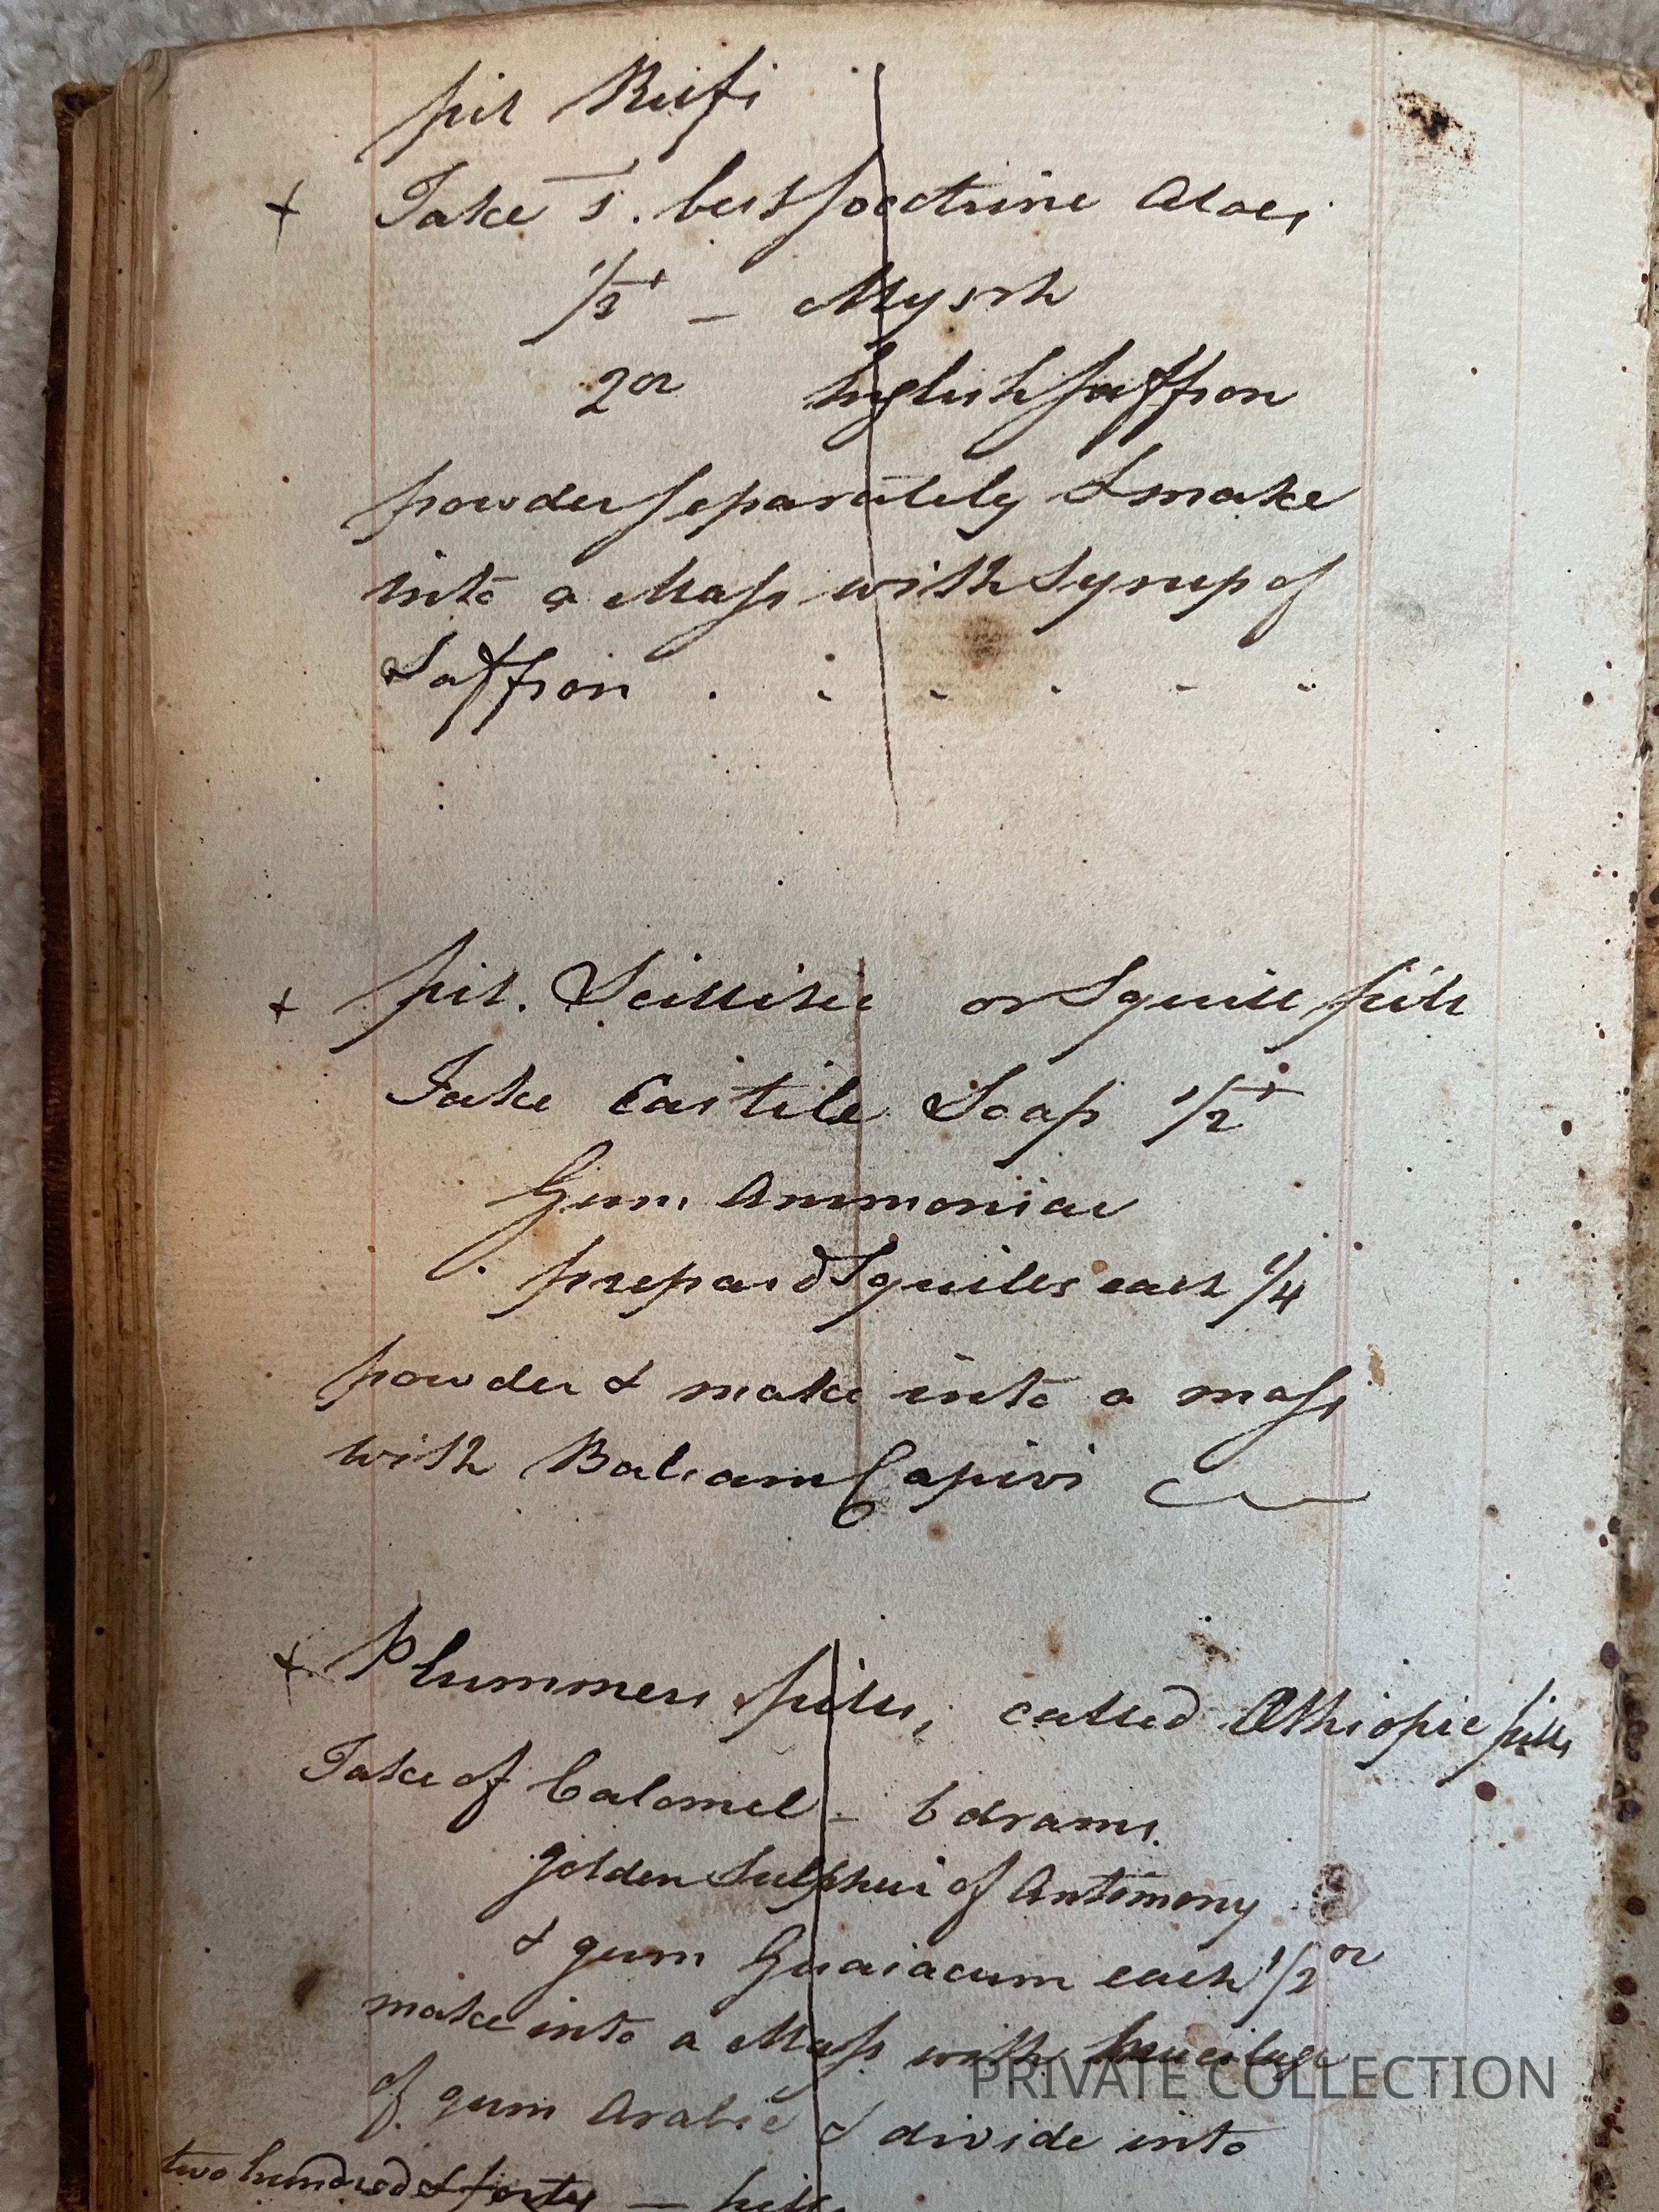 pil Rufi
+ Take 1. best Socotrine Aloes
1/2 + — Myrrh
2 oz English Saffron
powder separately & make
into a Mass with Syrup of
Saffron . . . . . .
+ pil. Scillitic or Squill pills
Take Castile Soap 1/2 +
Gum Ammoniac
prepard Squills each 1/4
powder & make into a mass
with Balsam Capivi
+ Plummers pills, called Ethiopic pills
Take of Calomel - 6 drams.
golden Sulphur of Antimony
& gum Guaiacum each 1/2 oz
make into a Mass with mucilage
of gum Arabic & divide into
two hundred & forty — pills
PRIVATE COLLECTION